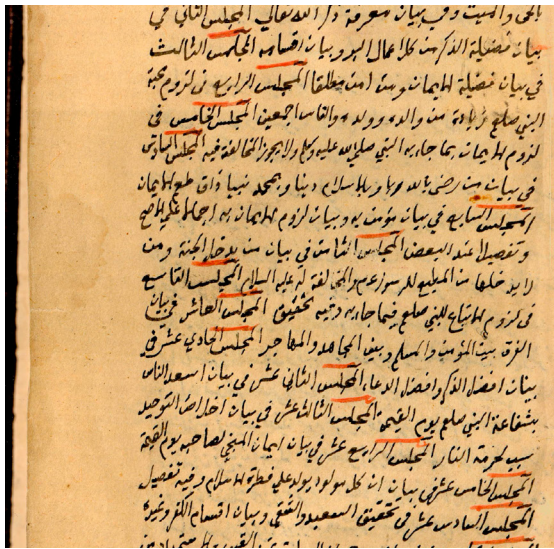 بالحي والميت وفي بيان معرفة ذكر الله تعالى المجلس الثاني في
بيان فضيلة الذكر من كل اعمال البر وبيان اقسامه المجلس الثالث
في بيان فضيلة الايمان ومن امن مطلقا المجلس الرابع في لزوم محبة
النبي صلعم زيادة من والده وولده والناس اجمعين المجلس الخامس في
لزوم الايمان بما جاء به النبي صلى الله عليه وسلم ولا يجوز المخالفة فيه المجلس السادس
في بيان من رضي بالله ربا وبالاسلام دينا وبمحمد نبيا ذاق طعم الايمان
المجلس السابع في بيان مؤمن به وبيان لزوم الايمان به اجمالا على الاصح
وتفصيلا عند البعض المجلس الثامن في بيان من يدخل الجنة ومن
لا يدخلها من المطيع للرسول عم والمخالفة له عليه السلام المجلس التاسع
في لزوم الاتباع للنبي صلعم فيما جاء به وفيه تحقيق المجلس العاشر في بيان
الفرق بين المؤمن والمسلم وبين المجاهد والمهاجر المجلس الحادي عشر في
بيان افضل الذكر وافضل الدعاء المجلس الثاني عشر في بيان اسعد الناس
بشفاعة النبي صلعم يوم القيمة المجلس الثالث عشر في بيان اخلاص التوحيد
سبب لحرمة النار المجلس الرابع عشر في بيان ايمان المنجي لصاحبه يوم القيمة
المجلس الخامس عشر في بيان ان كل مولود يولد على فطرة الاسلام وفيه تفصيل
المجلس السادس عشر في تحقيق السعيد والشقي وبيان اقسام الكفر وغيره